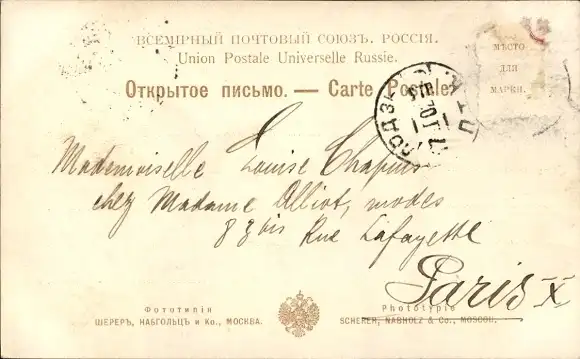 ВСЕМІРНЫЙ ПОЧТОВЫЙ СОЮЗЪ. РОССІЯ.
Union Postale Universelle Russie.
Открытое письмо. — Carte Postale
МѢСТО
ДЛЯ
МАРКИ.
Mademoiselle Louise Chapuis
chez Madame Alliot, modes
83 bis Rue Lafayette
Paris X
Фототипія
ШЕРЕРЪ, НАБГОЛЬЦЪ и Ко., МОСКВА.
Phototypie
SCHERER, NABHOLZ & Co., MOSCOU.